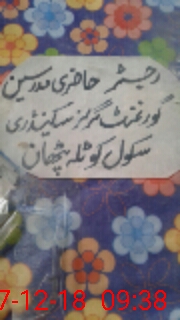 رجسٹر حاضری مدرسین
گورنمنٹ گرلز سکینڈری
سکول کوٹلہ پٹھان
7-12-18 09:38